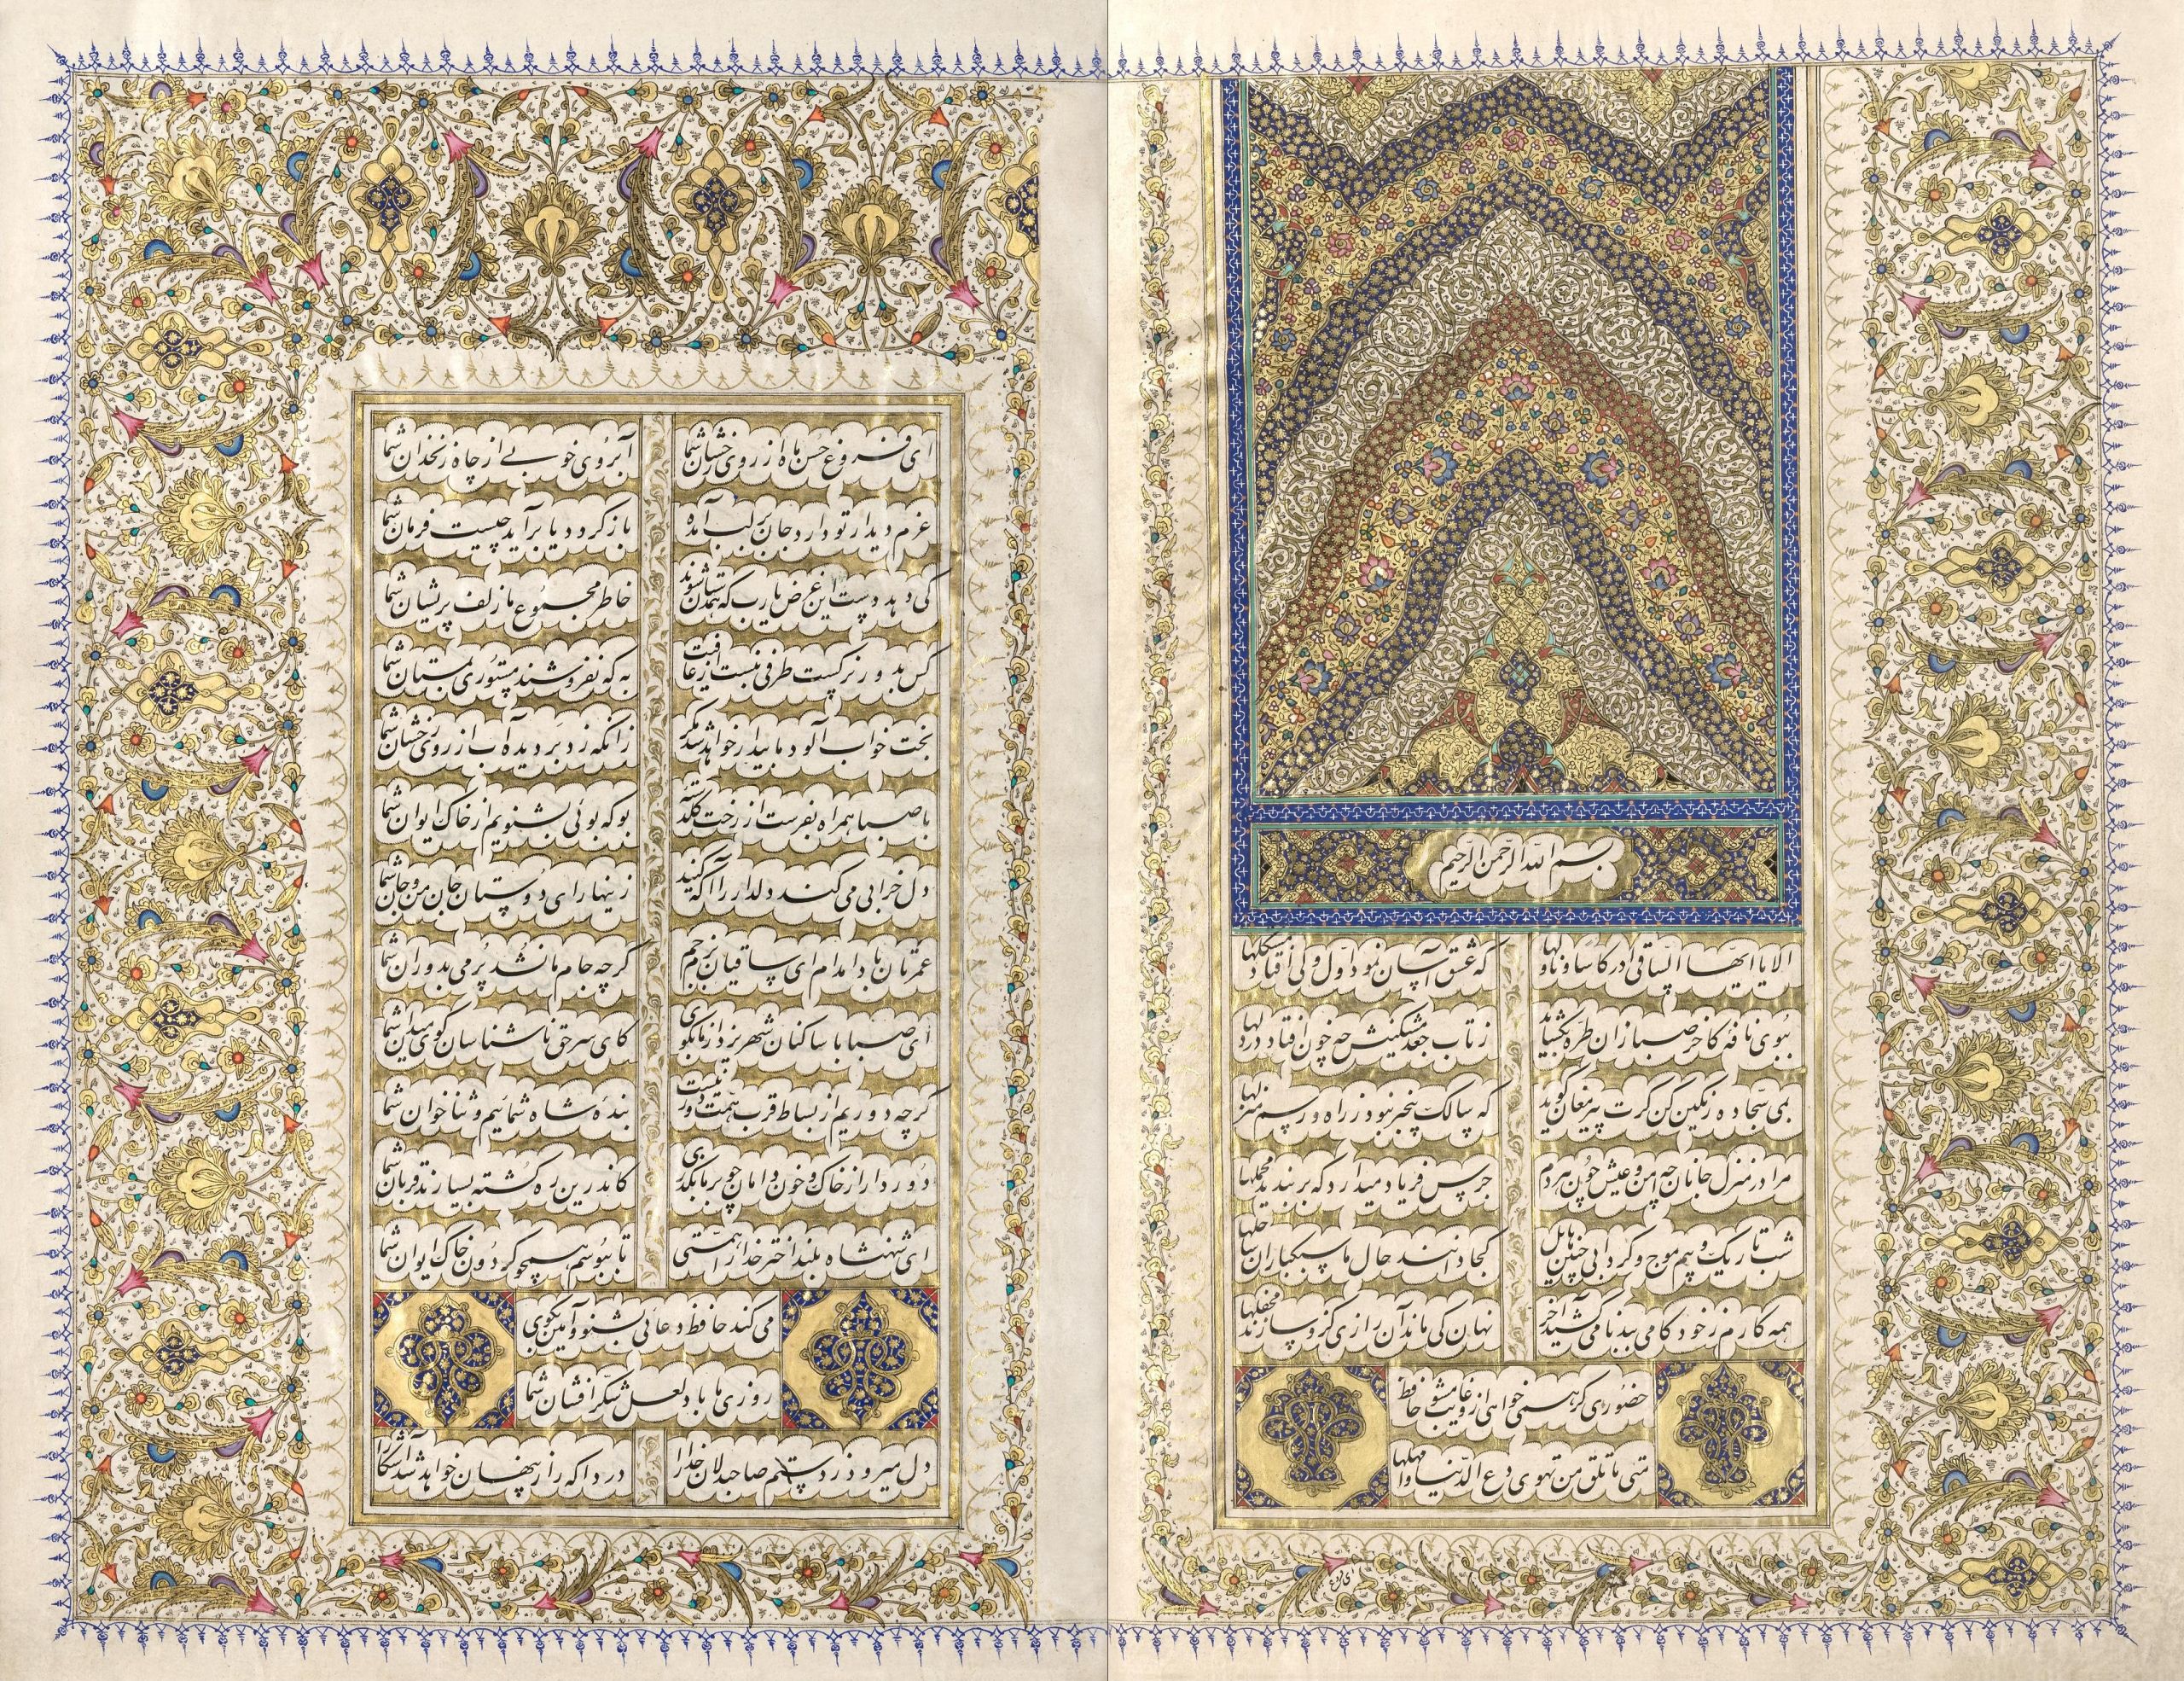 بسم الله الرحمن الرحیم
الا یا ایها الساقی ادر کاسا و ناولها که عشق آسان نمود اول ولی افتاد مشکلها
ببوی نافه کاخر صبا زان طره بگشاید ز تاب جعد مشکینش چه خون افتاد در دلها
بمی سجاده رنگین کن گرت پیر مغان گوید که سالک بیخبر نبود ز راه و رسم منزلها
مرا در منزل جانان چه امن و عیش چون هر دم جرس فریاد میدارد که بربندید محملها
شب تاریک و بیم موج و گردابی چنین هایل کجا دانند حال ما سبکباران ساحلها
همه کارم ز خود کامی ببدنامی کشید آخر نهان کی ماند آن رازی کزو سازند محفلها
حضوری گر همی خواهی ازو غایب مشو حافظ
متی ما تلق من تهوی دع الدنیا و اهملها
ای فروغ حسن ماه از روی رخشان شما آبروی خوبی از چاه زنخدان شما
عزم دیدار تو دارد جان بر لب آمده باز گردد یا برآید چیست فرمان شما
کی دهد دست این غرض یارب که همدستان شوند خاطر مجموع ما زلف پریشان شما
کس بدور نرگست طرفی نبست از عافیت به که نفروشند مستوری بمستان شما
بخت خواب آلود ما بیدار خواهد شد مگر زانکه زد بر دیده آب از روی رخشان شما
با صبا همراه بفرست از رخت گلدسته بو که بوئی بشنویم از خاک ایوان شما
دل خرابی می کند دلدار را آگه کنید زینهار ای دوستان جان من و جان شما
عمرتان بادا مدام ای ساقیان بزم جم گرچه جام ما نشد پر می بدوران شما
ای صبا با ساکنان شهر یزد از ما بگوی کای سر حق ناشناسان گوی میدان شما
گرچه دوریم از بساط قرب همت دور نیست بنده شاه شمائیم و ثنا خوان شما
دور دار از خاک و خون دامان چو بر ما بگذری کاندرین ره کشته بسیارند قربان شما
ای شهنشاه بلند اختر خدا را همتی تا ببوسم همچو گردون خاک ایوان شما
می کند حافظ دعائی بشنو و آمین بگوی
روزی ما باد لعل شکر افشان شما
دل میرود ز دستم صاحبدلان خدا را دردا که راز پنهان خواهد شد آشکارا